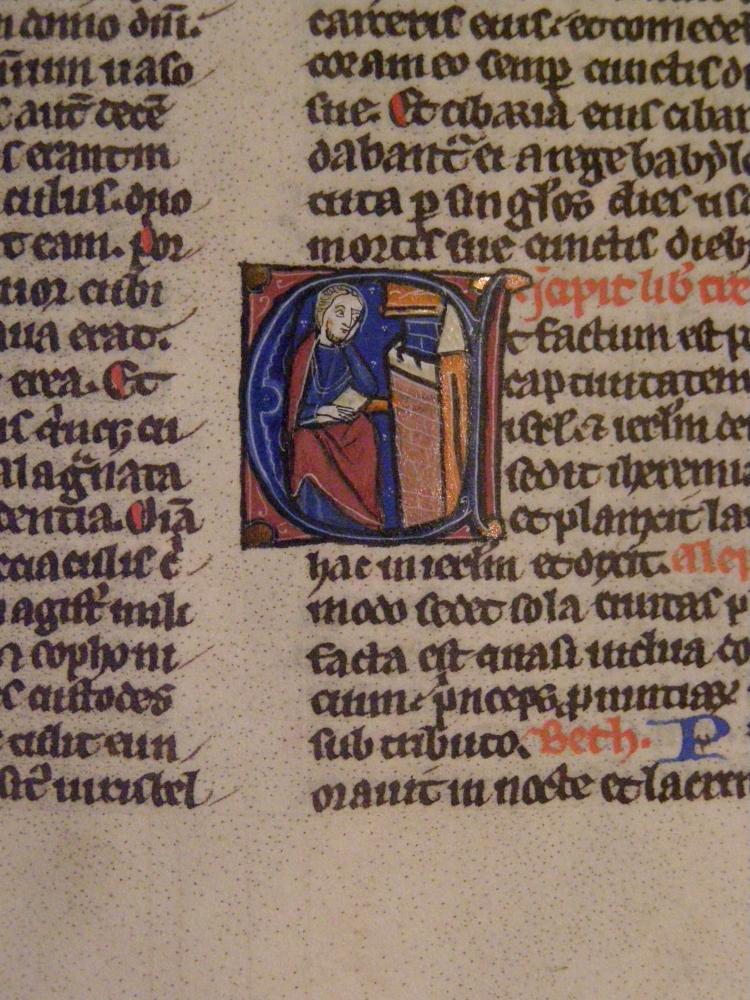 domo dñi.
uaso
aut̃ decē
erant in
duo
eam. por
uor cubi
erat.
erea. Et
mala g̃nata
dentia. Oĩa
magist̃ mili
sophoni
custodes
tulit eun
carceris eius. et comede
coram eo semꝑ cunctis d
sue. Et cibaria eius cibar
dabant̃ ei a rege babyl
cuta ꝑ singl̃os dies us
mortis sue cunctis dieb
Icipit lib̃ tre
Et factum est p
cap tiuitatem
isrl̃. ⁊ ierl̃m de
sedit iheremi
et planxit la
hac in ierl̃m et dixit. Alep
modo sedet sola ciuitas p
facta est quasi uidua do
cium. p̃nceps ꝓuintiaꝝ
sub tributo. Beth. P
orauit in nocte et lacrim